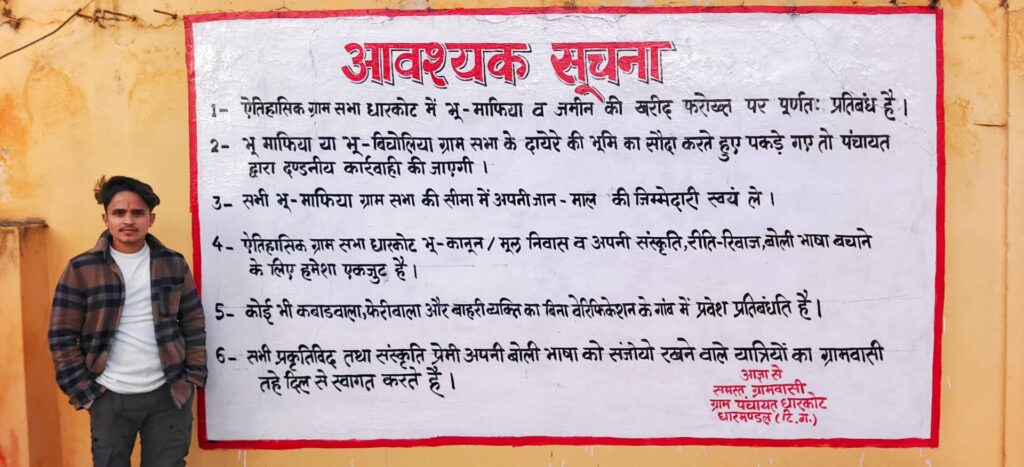 आवश्यक सूचना
1- ऐतिहासिक ग्राम सभा धारकोट में भू-माफिया व जमीन की खरीद फरोख्त पर पूर्णतः प्रतिबंध है।
2- भू माफिया या भू-बिचोलिया ग्राम सभा के दायेरे की भूमि का सौदा करते हुए पकड़े गए तो पंचायत
द्वारा दण्डनीय कार्रवाही की जाएगी।
3- सभी भू-माफिया ग्राम सभा की सीमा में अपनी जान-माल की जिम्मेदारी स्वयं ले।
4- ऐतिहासिक ग्राम सभा धारकोट भू-कानून/मूल निवास व अपनी संस्कृति,रीति-रिवाज,बोली भाषा बचाने
के लिए हमेशा एकजुट है।
5- कोई भी कबाडवाला,फेरीवाला और बाहरी व्यक्ति का बिना वेरिफिकेशन के गांव में प्रवेश प्रतिबंधति है।
6- सभी प्रकृतिविद तथा संस्कृति प्रेमी अपनी बोली भाषा को संजोयो रखने वाले यात्रियों का ग्रामवासी
तहे दिल से स्वागत करते हैं।
आज्ञा से
समस्त ग्रामवासी
ग्राम पंचायत धारकोट
धारमण्डल (टि.ग.)